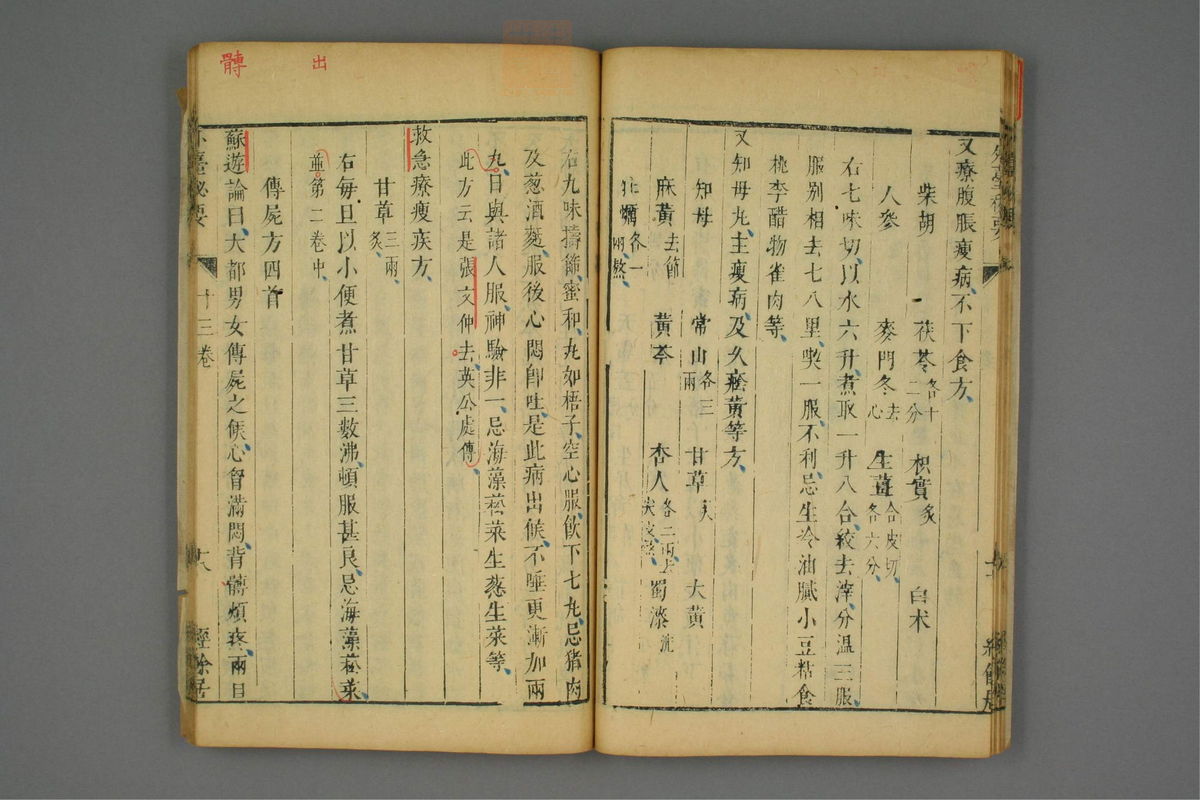 又療腹脹瘦病不下食方
柴胡 茯苓各十二分 枳實炙 白朮
人參 麥門冬去心 生薑合皮切各六分
右七味切以水六升煮取一升八合絞去滓分溫三服
服別相去七八里喫一服不利忌生冷油膩小豆粘食
桃李醋物雀肉等
又知母丸主瘦病及久瘧黃等方
知母 常山各三兩 甘草炙 大黃
麻黃去節 黃芩 杏人各二兩去 蜀漆洗
牡蠣各一兩熬
右九味擣篩蜜和丸如梧子空心服飲下七丸忌猪肉
及葱酒麵服後心悶卽吐是此病出候不唾更漸加兩
丸日與諸人服神驗非一忌海藻菘菜生葱生菜等
此方云是張文仲去英公處傳
救急療瘦疾方
甘草三兩炙
右每旦以小便煮甘草三數沸頓服甚良忌海藻菘菜
並第二卷中
傳屍方四首
蘇遊論曰大都男女傳屍之候心胷滿悶背髆煩疼兩目
十三卷 經餘居
出
髆